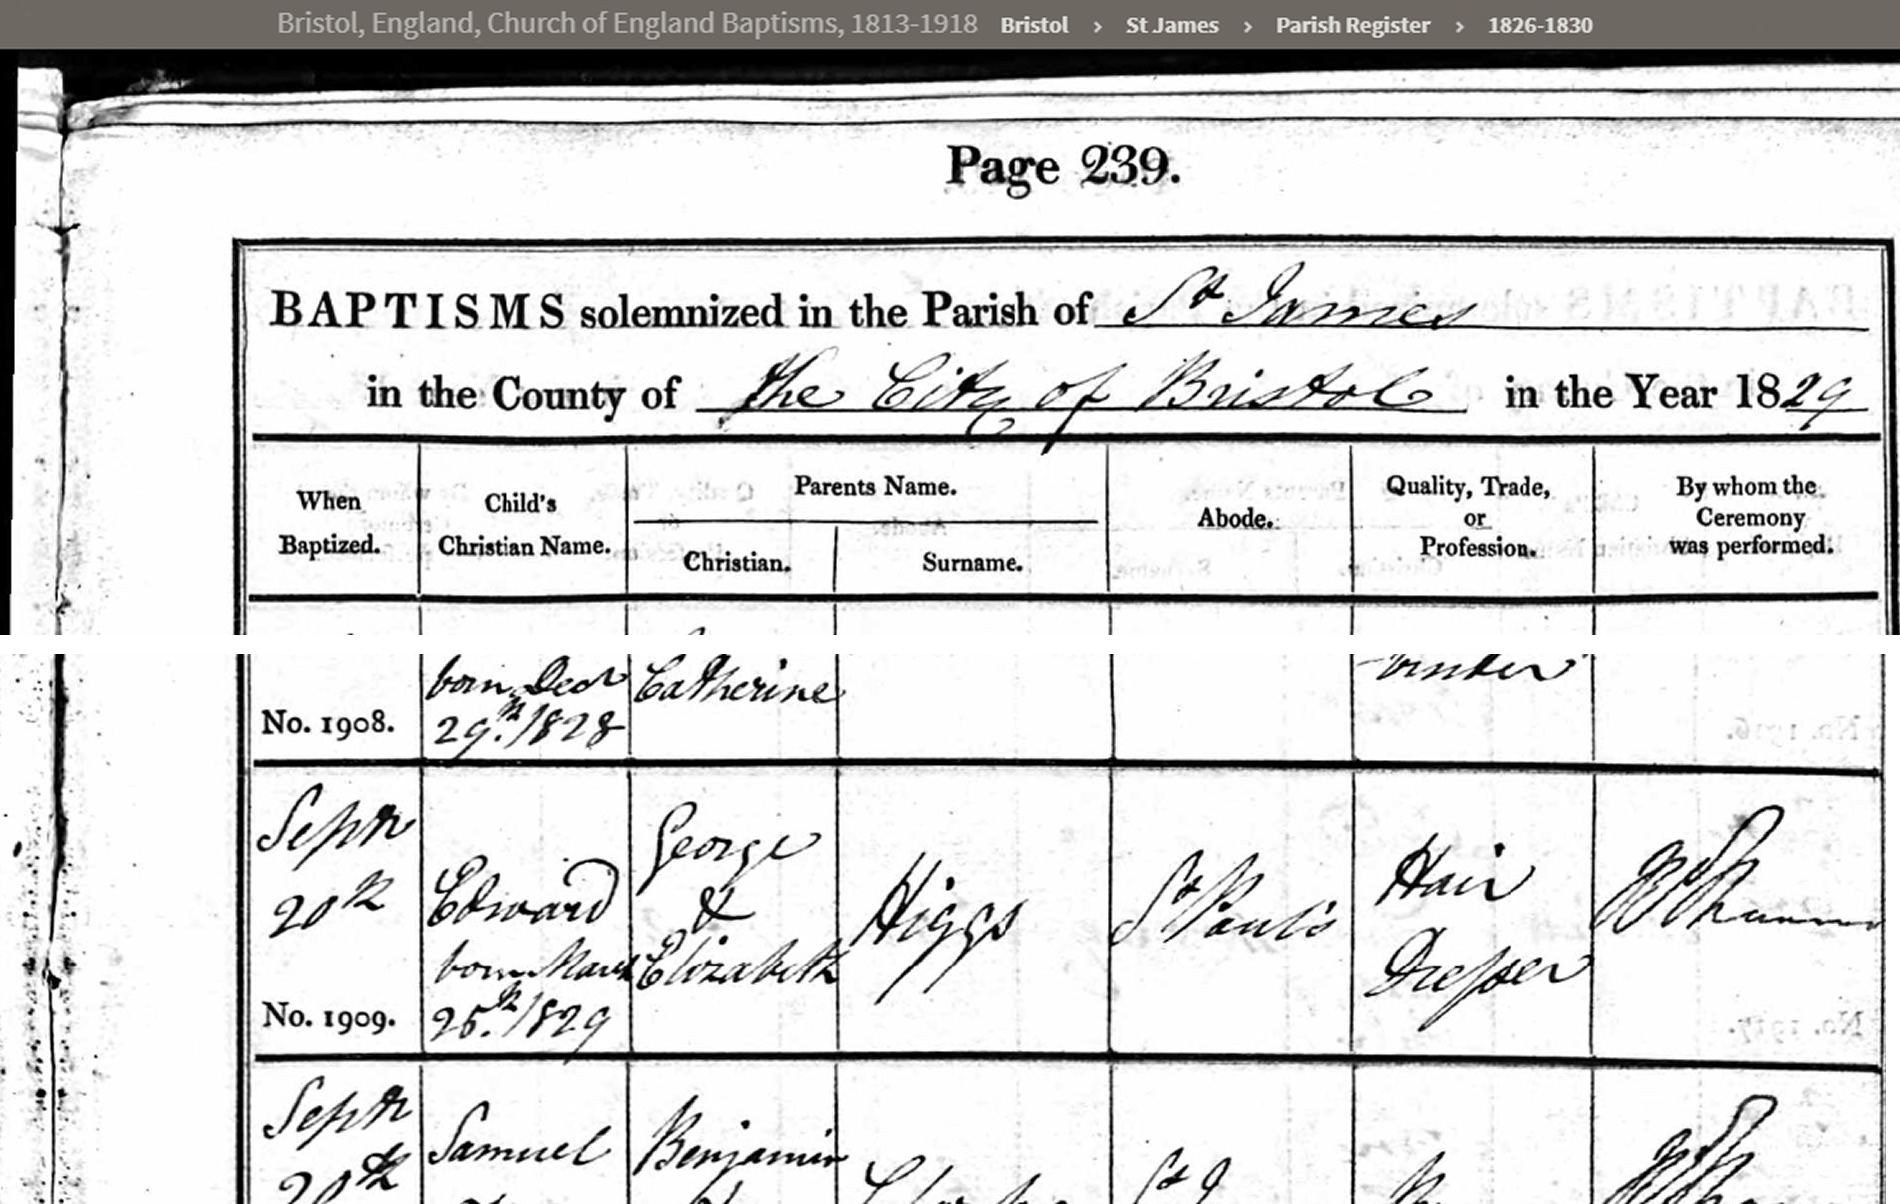 Bristol, England, Church of England Baptisms, 1813-1918 Bristol > St James > Parish Register > 1826-1830
Page 239.
BAPTISMS solemnized in the Parish of St James
in the County of the City of Bristol in the Year 1829
When Baptized.
Child's Christian Name.
Parents Name.
Christian.
Surname.
Abode.
Quality, Trade, or Profession.
By whom the Ceremony was performed.
No. 1908.
born Decr
29th/1828
Catherine
Septr
20th
No. 1909.
Edward
born March
25th/1829
George
&
Elizabeth
Higgs
St Paul's
Hair
Dresser
Septr
20th
Samuel
Benjamin